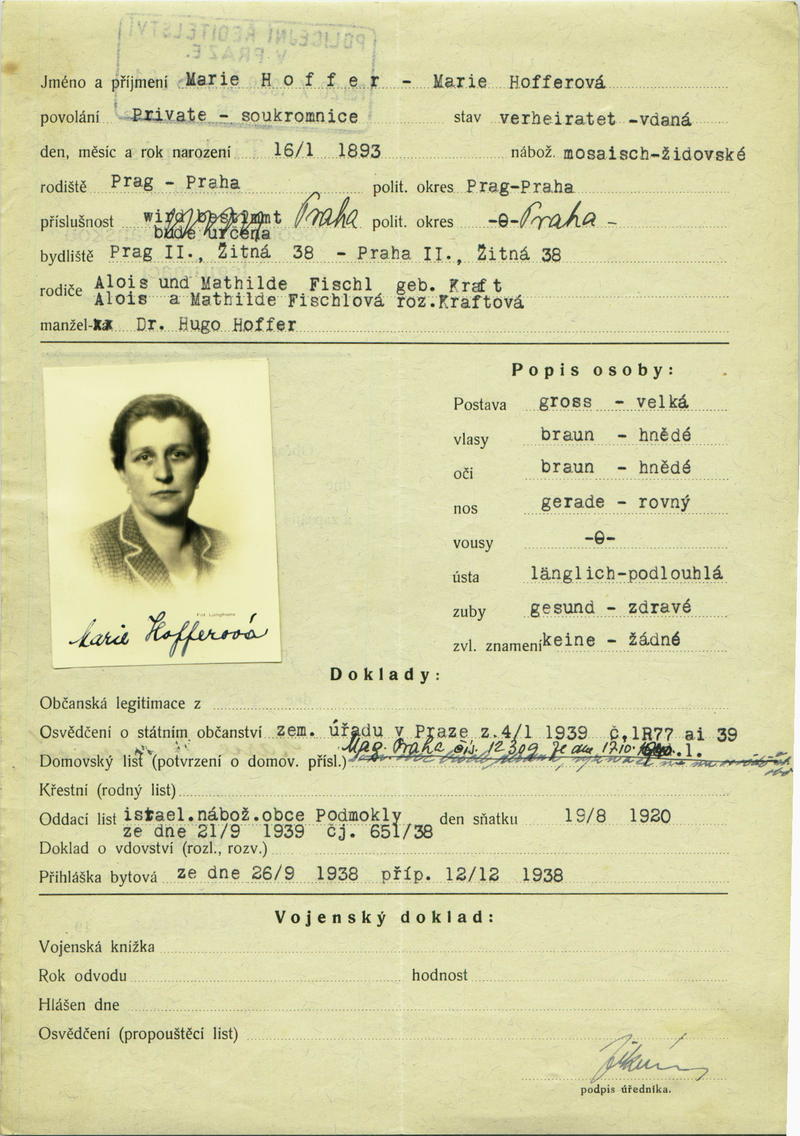 POLICEJNÍ ŘEDITELSTVÍ
V PRAZE.
Jméno a příjmení Marie Hoffer - Marie Hofferová
povolání Private - soukromnice stav verheiratet -vdaná
den, měsíc a rok narození 16/1 1893 nábož. mosaisch-židovské
rodiště Prag - Praha polit. okres Prag-Praha
příslušnost wird bestimmt Praha polit. okres -0- Praha -
bude určena
bydliště Prag II., Žitná 38 - Praha II., Žitná 38
rodiče Alois und Mathilde Fischl geb. Kraft
Alois a Mathilde Fischlová roz.Kraftová
manžel-xx Dr. Hugo Hoffer
Popis osoby:
Postava gross - velká
vlasy braun - hnědé
oči braun - hnědé
nos gerade - rovný
vousy -0-
ústa länglich-podlouhlá
zuby gesund - zdravé
zvl. znamení keine - žádné
Marie Hofferová
Doklady:
Občanská legitimace z
Osvědčení o státním občanství zem. úřadu v Praze z.4/1 1939 č.1R77 ai 39
Mag. Praha čís. 12309 ze dne 17.10.
Domovský list (potvrzení o domov. přísl.)
Křestní (rodný list)
Oddací list israel.nábož.obce Podmokly den sňatku 19/8 1920
ze dne 21/9 1939 čj. 651/38
Doklad o vdovství (rozl., rozv.)
Přihláška bytová ze dne 26/9 1938 příp. 12/12 1938
Vojenský doklad:
Vojenská knížka
Rok odvodu hodnost
Hlášen dne
Osvědčení (propouštěcí list)
podpis úředníka.